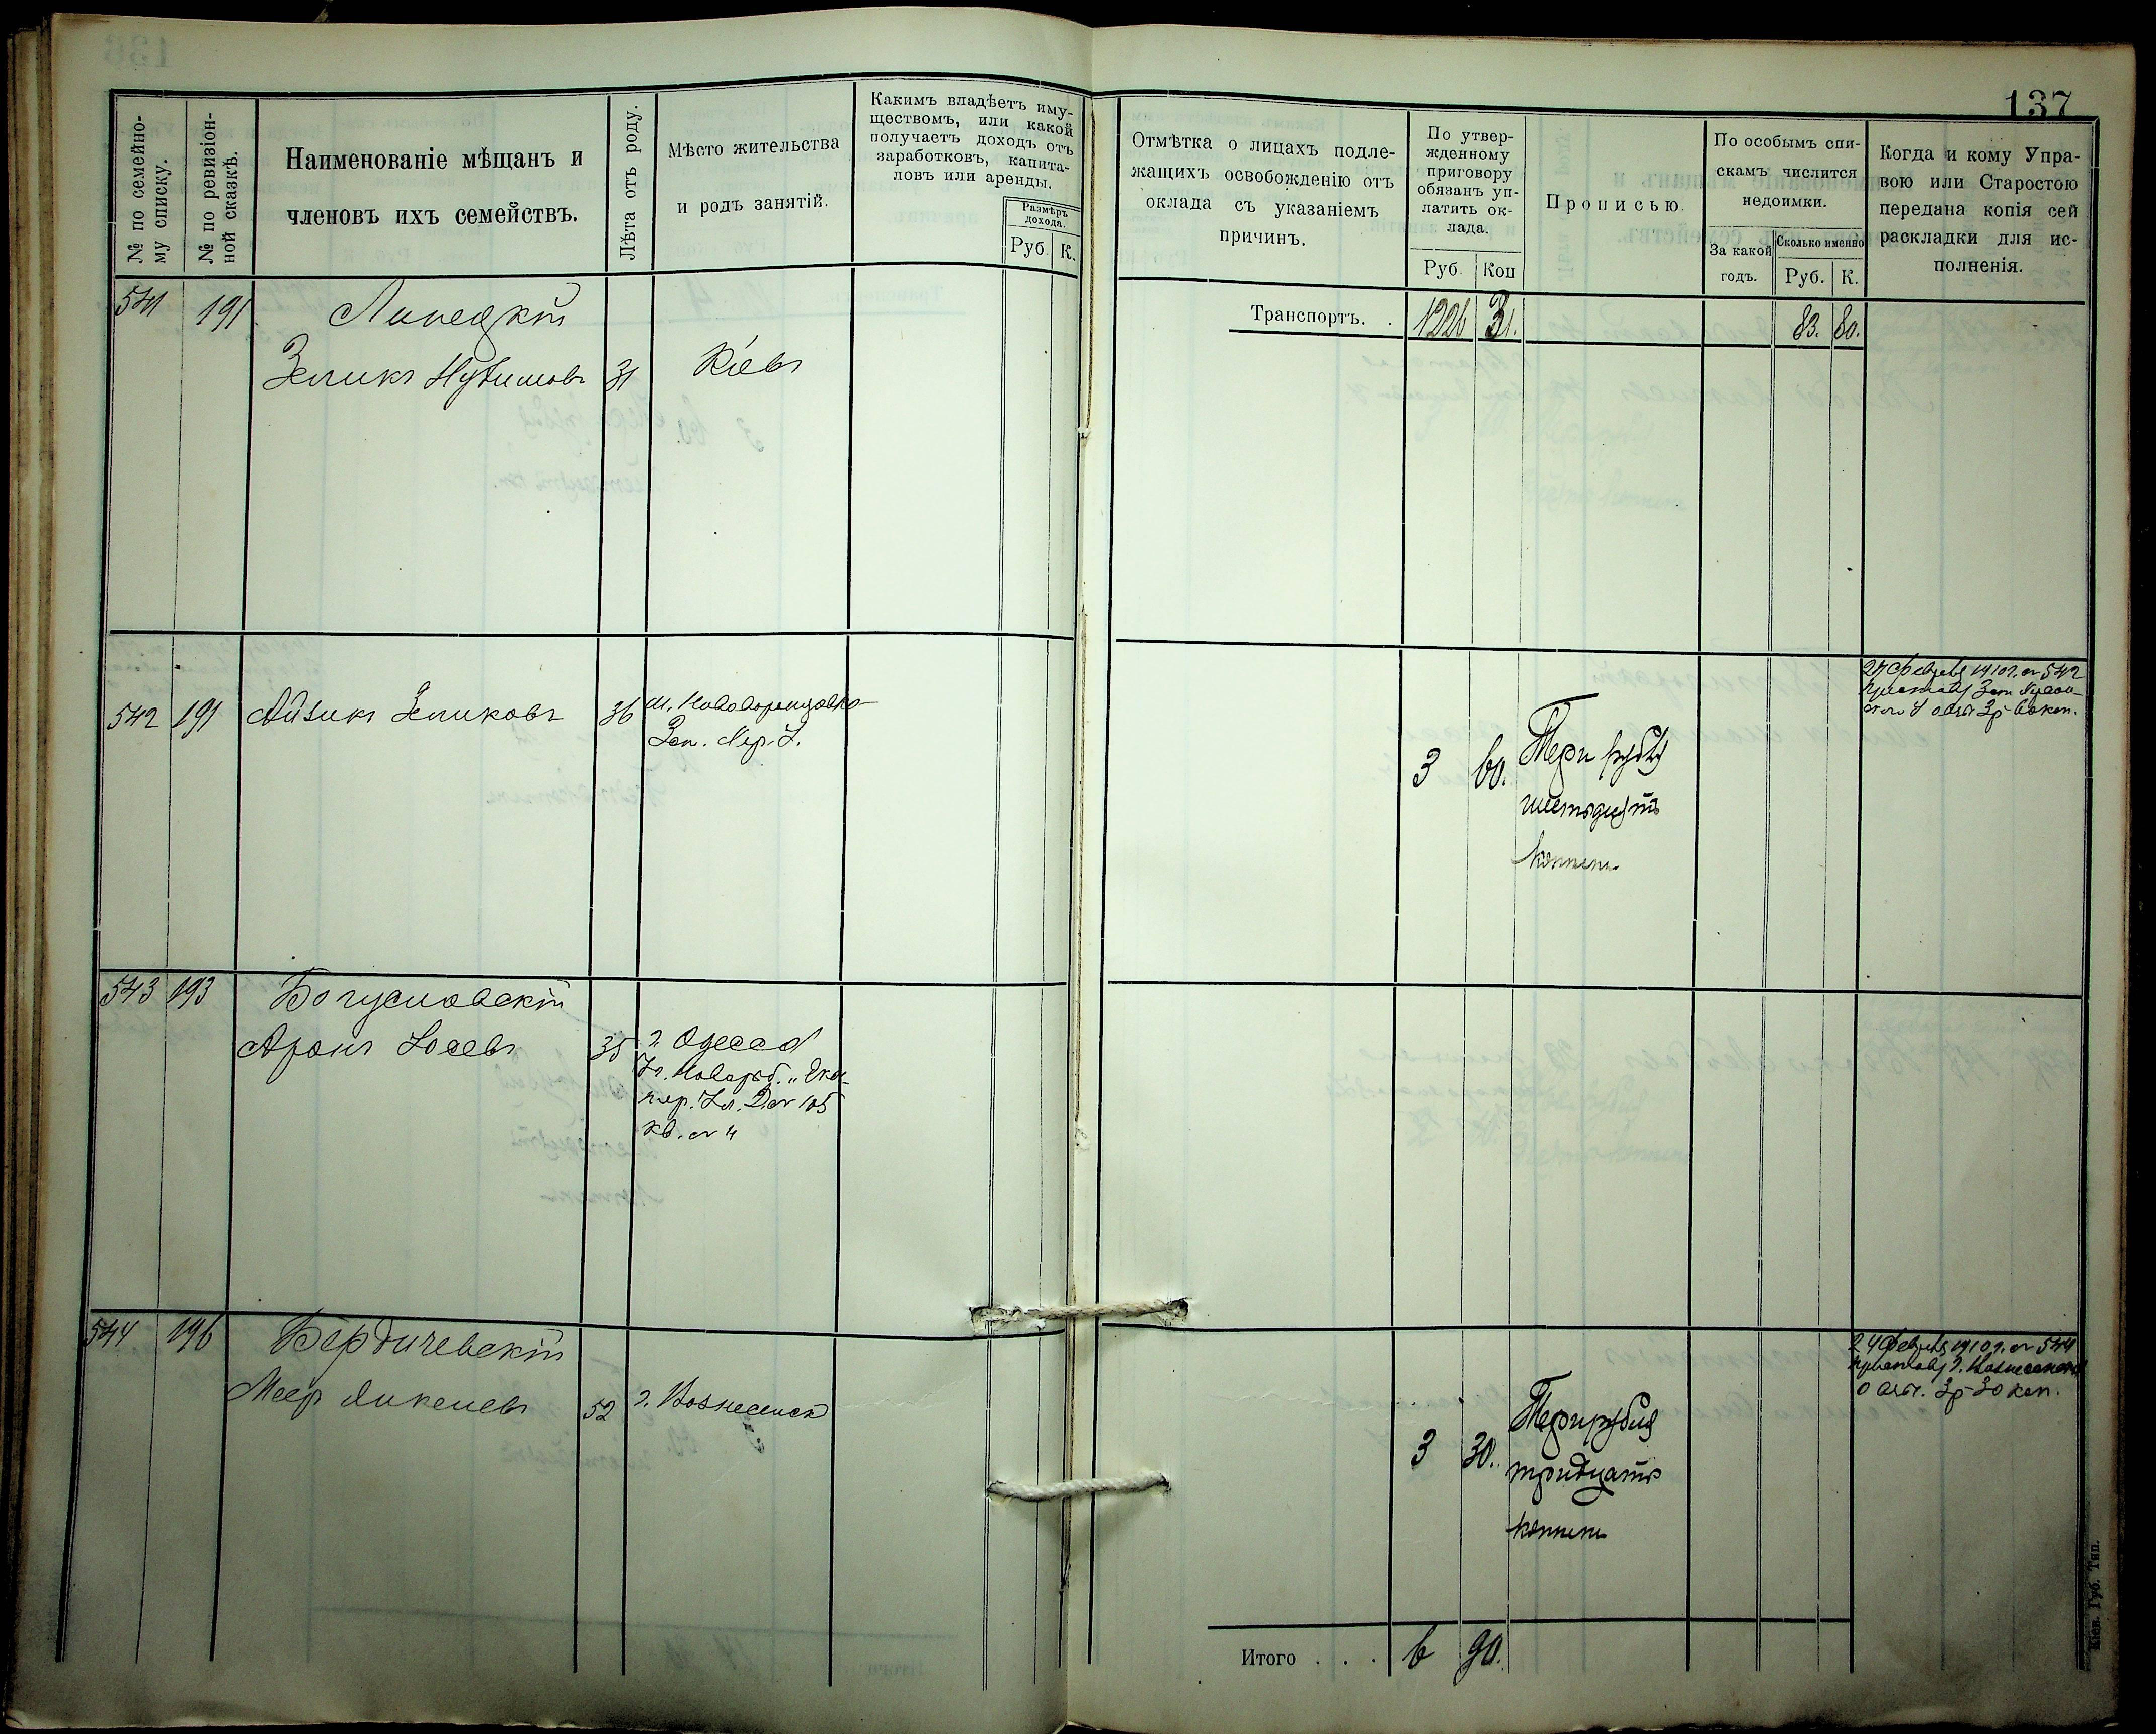 137
№ по семейно-
му списку.
№ по ревизіон-
ной сказкѣ.
Наименованіе мѣщанъ и
членовъ ихъ семействъ.
Лѣта отъ роду.
Мѣсто жительства
и родъ занятій.
Какимъ владѣетъ иму-
ществомъ, или какой
получаетъ доходъ отъ
заработковъ, капита-
ловъ или аренды.
Размѣръ
дохода.
Руб. К.
Отмѣтка о лицахъ подле-
жащихъ освобожденію отъ
оклада съ указаніемъ
причинъ.
По утвер-
жденному
приговору
обязанъ уп-
латить ок-
лада.
Руб. Коп
Прописью.
По особымъ спи-
скамъ числится
недоимки.
За какой
годъ.
Сколько именно
Руб. К.
Когда и кому Упра-
вою или Старостою
передана копія сей
раскладки для ис-
полненія.
Транспортъ. . 1226 31. 83. 80.
541 191 Липецкій
Зеликъ Нухимовъ 31 Кіевъ
542 191 Айзикъ Зеликовъ 36 м. Нововоронцовка
3 60. Три рубля
шестьдесятъ
копѣекъ
543 193 Богуславскій
Аронъ Іосевъ 35 г Одесса
кв. № 4
544 196 Бердичевскій
Меер Янкелевъ 52 г. Вознесенск
3 30. Три рубля
тридцать
копѣекъ
24 Февраля 1910 г. № 544
Приставу г. Вознесенска
3 р 30 коп.
Итого . . . 6 90.
Кіев. Губ. Тип.